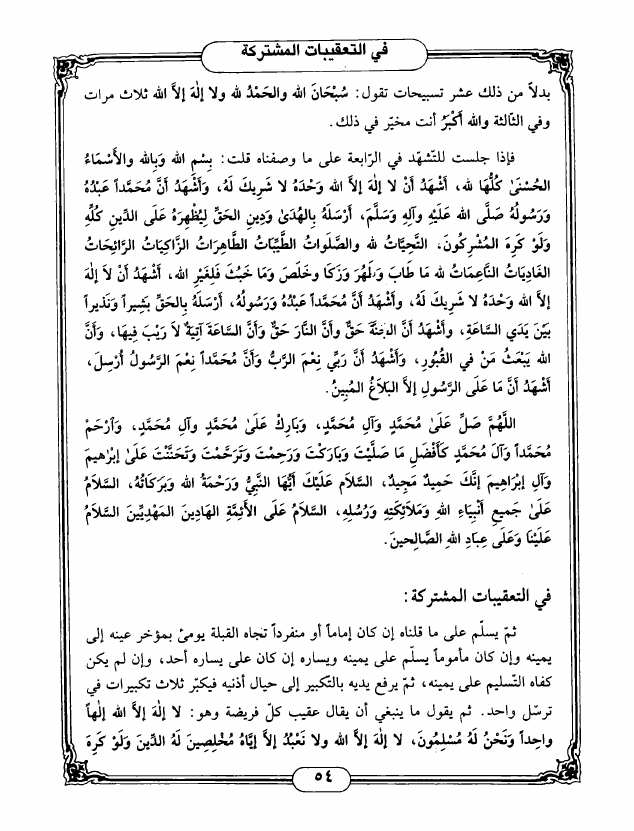 في التعقيبات المشتركة
بدلاً من ذلك عشر تسبيحات تقول: سُبْحَانَ الله والحَمْدُ لله ولا إلٰهَ إلاَّ الله ثلاث مرات
وفي الثالثة والله أَكْبَرُ أنت مخيّر في ذلك.
فإذا جلست للتّشهّد في الرّابعة على ما وصفناه قلت: بِسْمِ الله وَبِالله والأَسْمَاءُ
الحُسْنَىٰ كُلُّهَا لله، أَشْهَدُ أَنْ لا إلٰهَ إلاَّ الله وَحْدَهُ لا شَرِيكَ لَهُ، وَأَشْهَدُ أَنَّ مُحَمَّداً عَبْدُهُ
وَرَسُولُهُ صَلَّى الله عَلَيْهِ وآلِهِ وَسَلَّمَ، أَرْسَلَهُ بِالهُدَىٰ وَدِينِ الحَقِّ لِيُظْهِرَهُ عَلَى الدِّينِ كُلِّهِ
وَلَوْ كَرِهَ المُشْرِكُونَ، التَّحِيَّاتُ لله والصَّلَواتُ الطَّيِّبَاتُ الطَّاهِرَاتُ الزَّاكِيَاتُ الرَّائِحَاتُ
الغَادِيَاتُ النَّاعِمَاتُ لله مَا طَابَ وَطَهُرَ وَزَكَا وخَلَصَ وَمَا خَبُثَ فَلِغَيْرِ الله، أَشْهَدُ أَنْ لاَ إلٰهَ
إلاَّ الله وَحْدَهُ لا شَرِيكَ لَهُ، وأَشْهَدُ أَنَّ مُحَمَّداً عَبْدُهُ وَرَسُولُهُ، أَرْسَلَهُ بِالحَقِّ بَشِيراً وَنَذِيراً
بَيْنَ يَدَي السَّاعَةِ، وأَشْهَدُ أَنَّ الجَنَّةَ حَقٌّ وأَنَّ النَّارَ حَقٌّ وَأَنَّ السَّاعَةَ آتِيَةٌ لاَ رَيْبَ فِيهَا، وَأَنَّ
الله يَبْعَثُ مَنْ في القُبُورِ، وَأَشْهَدُ أَنَّ رَبِّي نِعْمَ الرَّبُّ وَأَنَّ مُحَمَّداً نِعْمَ الرَّسُولُ أُرْسِلَ،
أَشْهَدُ أَنَّ مَا عَلَى الرَّسُولِ إلاَّ البَلاَغُ المُبِينُ.
اللَّهُمَّ صَلِّ عَلَىٰ مُحَمَّدٍ وَآلِ مُحَمَّدٍ، وَبَارِكْ عَلَىٰ مُحَمَّدٍ وآلِ مُحَمَّدٍ، وَٱرْحَمْ
مُحَمَّداً وَآلَ مُحَمَّدٍ كَأَفْضَلِ مَا صَلَّيْتَ وَبَارَكْتَ وَرَحِمْتَ وَتَرَحَّمْتَ وَتَحَنَّنْتَ عَلَىٰ إبْرٰهِيمَ
وَآلِ إبْرَاهِيمَ إنَّكَ حَمِيدٌ مَجِيدٌ، السَّلاَم عَلَيْكَ أَيُّهَا النَّبِيُّ وَرَحْمَةُ الله وَبَرَكَاتُهُ، السَّلاَمُ
عَلَىٰ جَمِيعِ أَنْبِيَاءِ اللهِ وَمَلاَئِكَتِهِ وَرُسُلِهِ، السَّلاَمُ عَلَى الأَئِمَّةِ الهَادِينَ المَهْدِيِّينَ السَّلاَمُ
عَلَيْنَا وَعَلَى عِبَادِ اللهِ الصَّالِحينَ.
في التعقيبات المشتركة:
ثمّ يسلّم على ما قلناه إن كان إماماً أو منفرداً تجاه القبلة يومئ بمؤخر عينه إلى
يمينه وإن كان مأموماً يسلّم على يمينه ويساره إن كان على يساره أحد، وإن لم يكن
كفاه التّسليم على يمينه، ثمّ يرفع يديه بالتّكبير إلى حيال أذنيه فيكبّر ثلاث تكبيرات في
ترسّل واحد. ثم يقول ما ينبغي أن يقال عقيب كلّ فريضة وهو: لا إلٰهَ إلاَّ الله إلٰهاً
واحِداً وَنَحْنُ لَهُ مُسْلِمُونَ، لا إلٰهَ إلاَّ الله ولا نَعْبُدُ إلاَّ إيَّاهُ مُخْلِصِينَ لَهُ الدِّينَ وَلَوْ كَرِهَ
٥٤